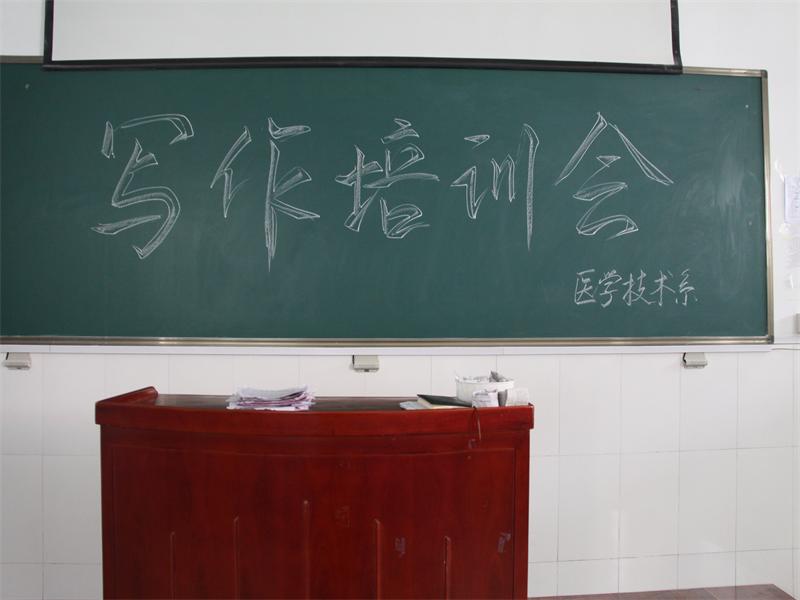 写作培训会
医学技术系